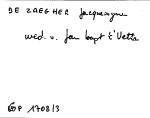 DE ZAEGHER Jacquemyne
wed. v. Jan bapt t'Vetts
GP 1708/3